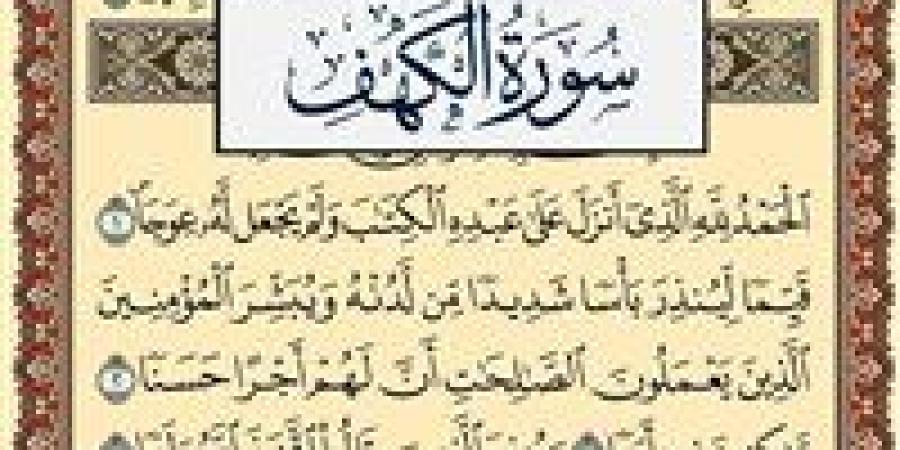 سُورَةُ الكَهْفِ
ٱلْحَمْدُ لِلَّهِ ٱلَّذِىٓ أَنزَلَ عَلَىٰ عَبْدِهِ ٱلْكِتَٰبَ وَلَمْ يَجْعَل لَّهُۥ عِوَجَا ١
قَيِّمًا لِّيُنذِرَ بَأْسًا شَدِيدًا مِّن لَّدُنْهُ وَيُبَشِّرَ ٱلْمُؤْمِنِينَ
ٱلَّذِينَ يَعْمَلُونَ ٱلصَّٰلِحَٰتِ أَنَّ لَهُمْ أَجْرًا حَسَنًا ٢